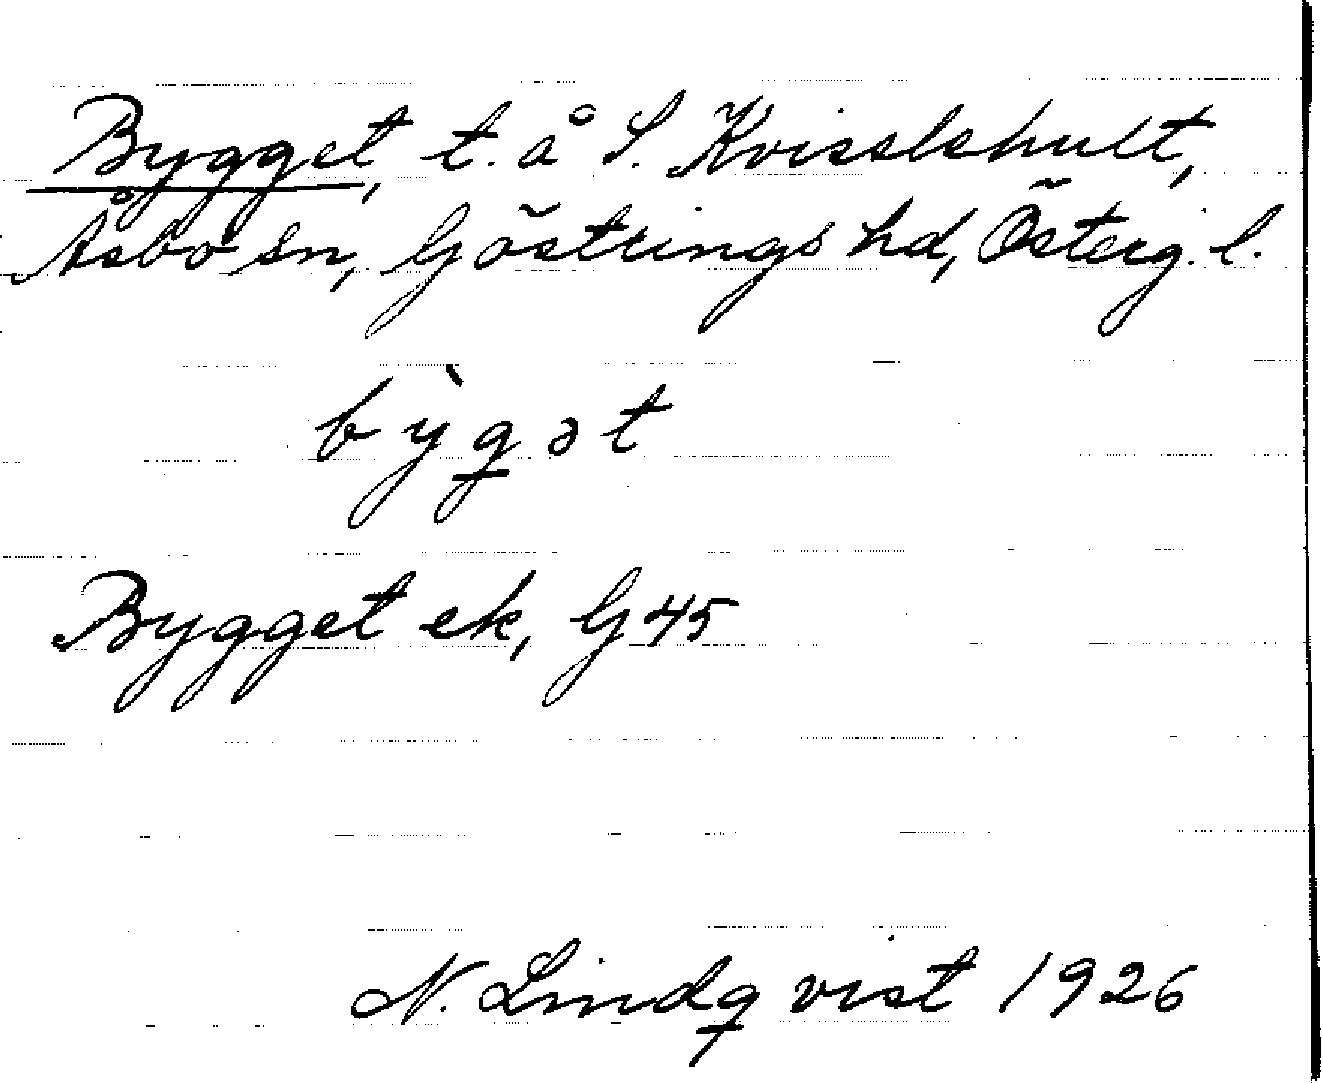 Bygget, t. å S. Kvisslehult,
Åsbo sn, Göstrings hd, Österg. l.
bỳgət
Bygget ek, G 45
N. Lindqvist 1926